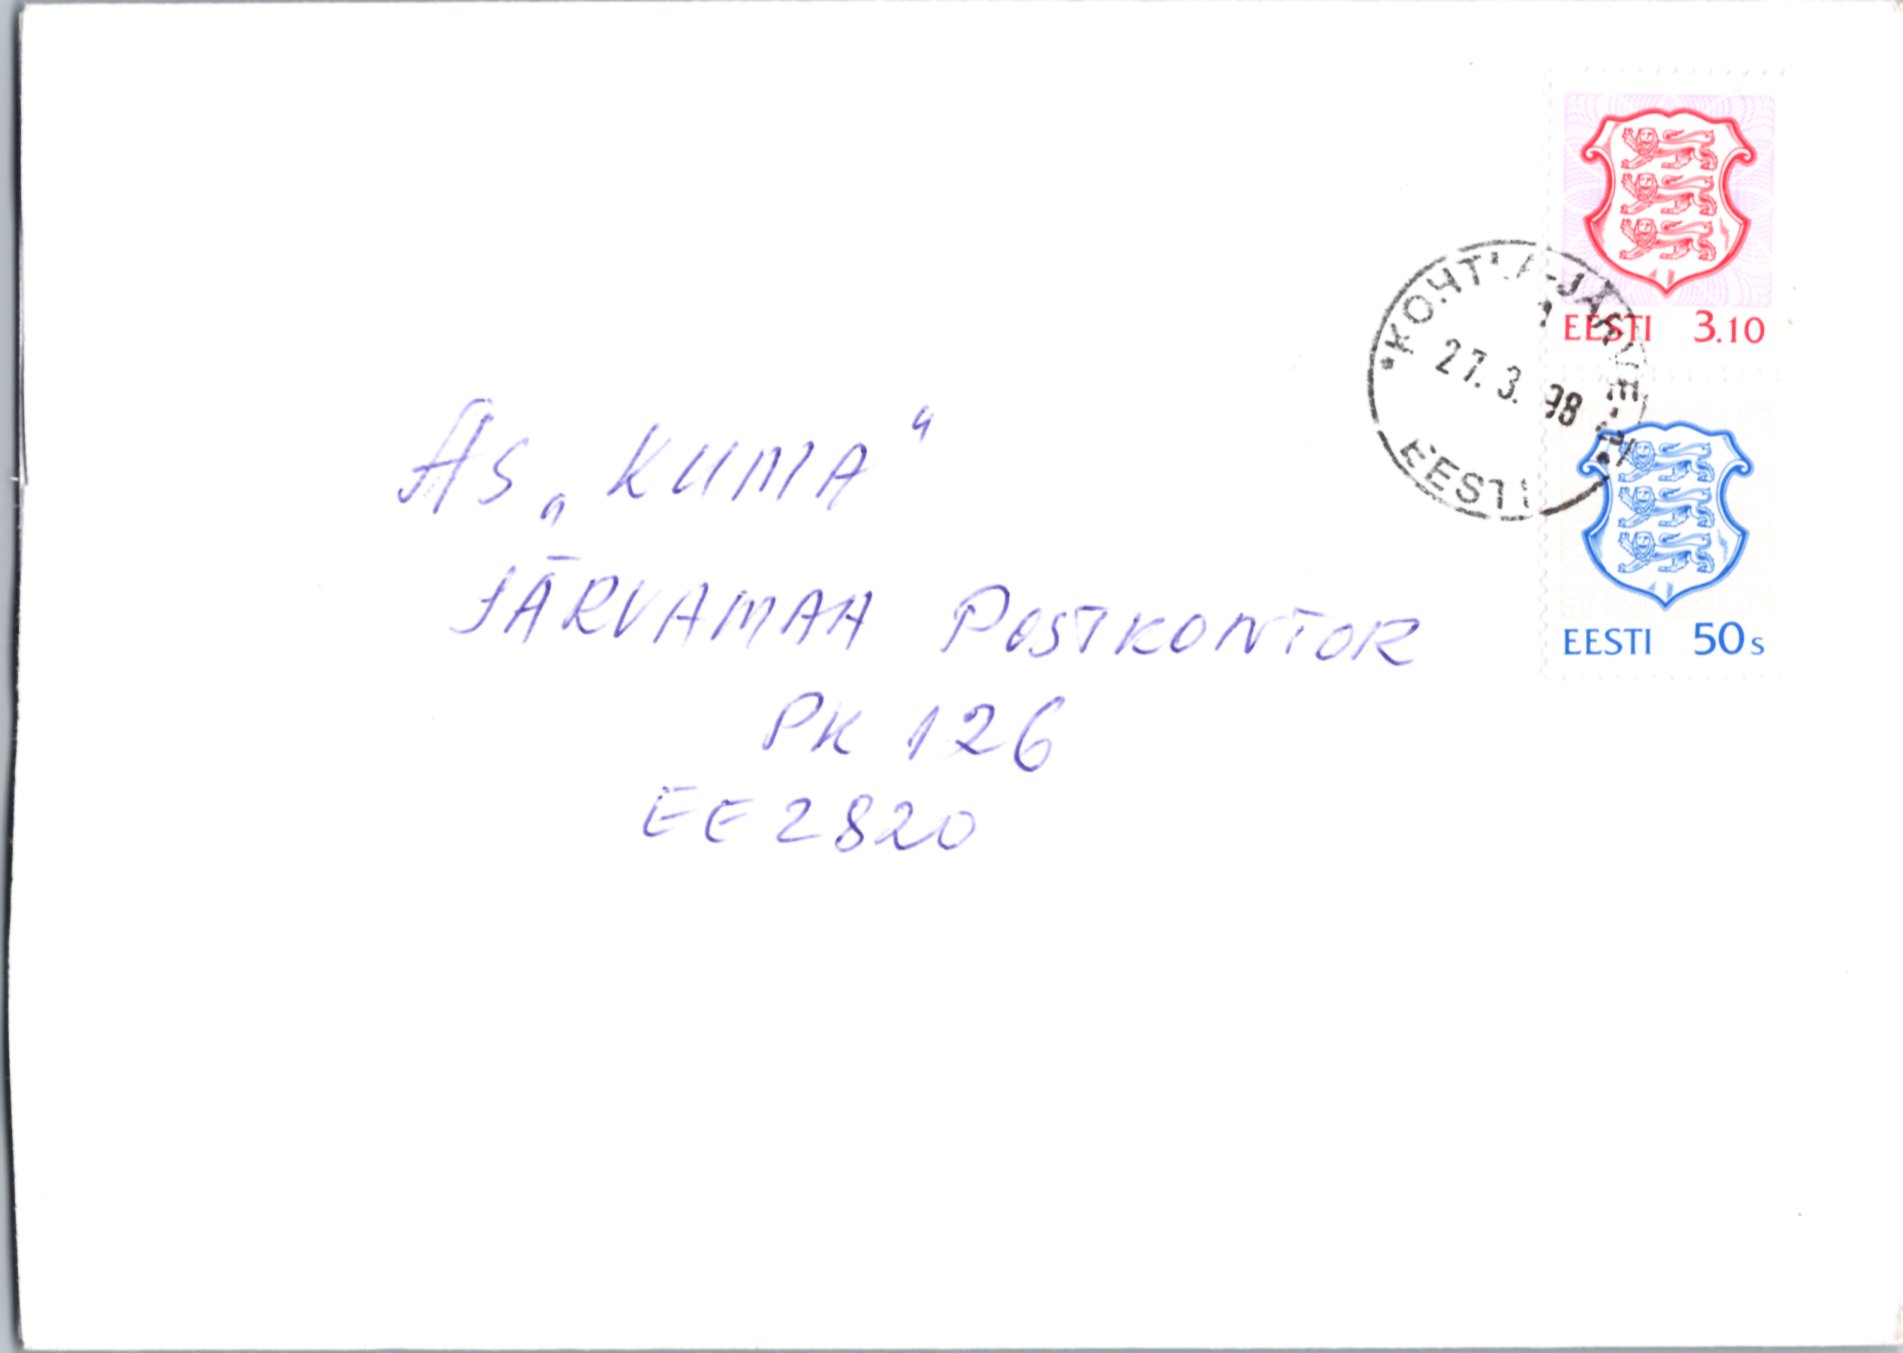 EESTI 3.10
KOHTLA-JÄRVE
27.3.98
EESTI
EESTI 50s
As „KUMA“
JÄRVAMAA POSTKONTOR
PK 126
EE2820